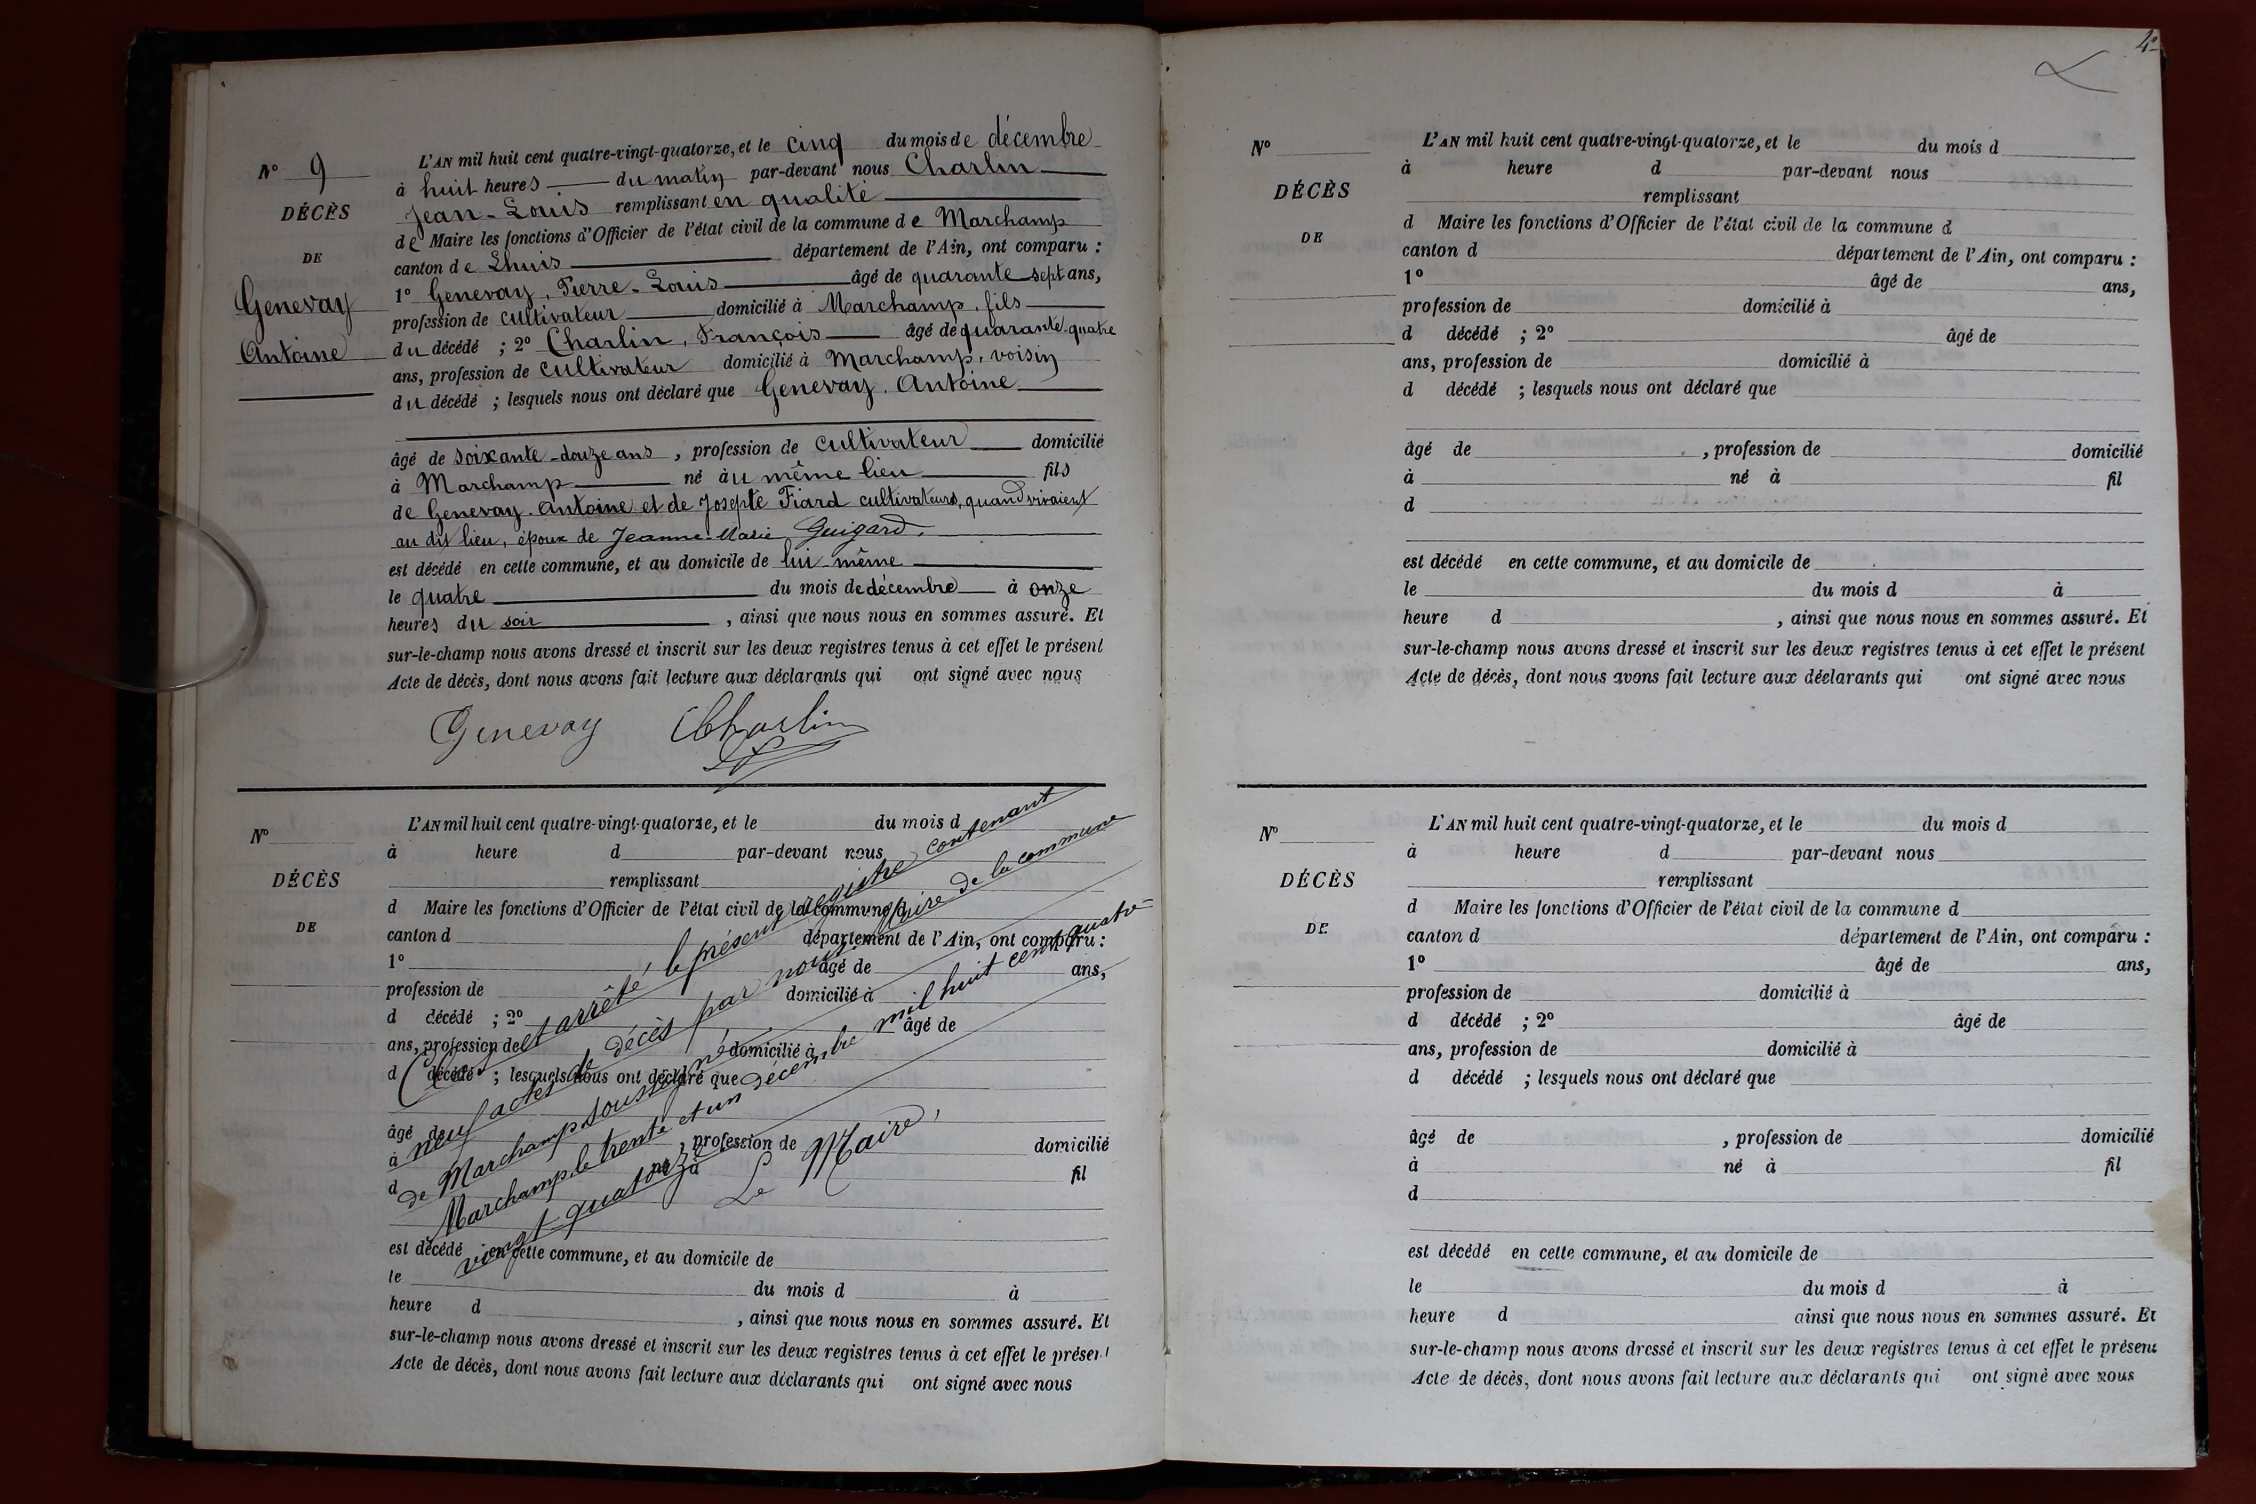 N° 9
DÉCÈS
DE
Genevay
Antoine
L'AN mil huit cent quatre-vingt-quatorze, et le cinq du mois de décembre
à huit heures du matin par-devant nous Charlin
Jean-Louis remplissant en qualité
de Maire les fonctions d'Officier de l'état civil de la commune de Marchamp
canton de Lhuis département de l'Ain, ont comparu :
1° Genevay, Pierre-Louis âgé de quarante sept ans,
profession de cultivateur domicilié à Marchamp, fils
du décédé ; 2° Charlin, François âgé de quarante-quatre
ans, profession de cultivateur domicilié à Marchamp, voisin
du décédé ; lesquels nous ont déclaré que Genevay. Antoine
âgé de soixante-douze ans , profession de cultivateur domicilié
à Marchamp né àu même lieu fils
de Genevay. Antoine et de Josepte Fiard cultivateurs, quand vivaient
au dit lieu, époux de Jeanne-Marie Guigard.
est décédé en cette commune, et au domicile de lui même
le quatre du mois de décembre à onze
heures du soir , ainsi que nous nous en sommes assuré. Et
sur-le-champ nous avons dressé et inscrit sur les deux registres tenus à cet effet le présent
Acte de décès, dont nous avons fait lecture aux déclarants qui ont signé avec nous
Genevay Charlin
N°
DÉCÈS
DE
L'AN mil huit cent quatre-vingt-quatorze, et le du mois d
à heure d par-devant nous
remplissant
d Maire les fonctions d'Officier de l'état civil de la commune d
canton d département de l'Ain, ont comparu :
1° âgé de ans,
profession de domicilié à
d décédé ; 2° âgé de
ans, profession de domicilié à
d décédé ; lesquels nous ont déclaré que
âgé de , profession de domicilié
à né à fil
d
est décédé en cette commune, et au domicile de
le du mois d à
heure d , ainsi que nous nous en sommes assuré. Et
sur-le-champ nous avons dressé et inscrit sur les deux registres tenus à cet effet le présent
Acte de décès, dont nous avons fait lecture aux déclarants qui ont signé avec nous
Clos et arrêté le présent registre contenant
neuf actes de décès par nous, Maire de la commune
de Marchamp soussigné
Marchamp le trente et un décembre mil huit cent quatre-
vingt quatorze
Le Maire,
4e
N°
DÉCÈS
DE
L'AN mil huit cent quatre-vingt-quatorze, et le du mois d
à heure d par-devant nous
remplissant
d Maire les fonctions d'Officier de l'état civil de la commune d
canton d département de l'Ain, ont comparu :
1° âgé de ans,
profession de domicilié à
d décédé ; 2° âgé de
ans, profession de domicilié à
d décédé ; lesquels nous ont déclaré que
âgé de , profession de domicilié
à né à fil
d
est décédé en cette commune, et au domicile de
le du mois d à
heure d , ainsi que nous nous en sommes assuré. Et
sur-le-champ nous avons dressé et inscrit sur les deux registres tenus à cet effet le présent
Acte de décès, dont nous avons fait lecture aux déclarants qui ont signé avec nous
N°
DÉCÈS
DE
L'AN mil huit cent quatre-vingt-quatorze, et le du mois d
à heure d par-devant nous
remplissant
d Maire les fonctions d'Officier de l'état civil de la commune d
canton d département de l'Ain, ont comparu :
1° âgé de ans,
profession de domicilié à
d décédé ; 2° âgé de
ans, profession de domicilié à
d décédé ; lesquels nous ont déclaré que
âgé de , profession de domicilié
à né à fil
d
est décédé en cette commune, et au domicile de
le du mois d à
heure d ainsi que nous nous en sommes assuré. Et
sur-le-champ nous avons dressé et inscrit sur les deux registres tenus à cet effet le présent
Acte de décès, dont nous avons fait lecture aux déclarants qui ont signé avec nous